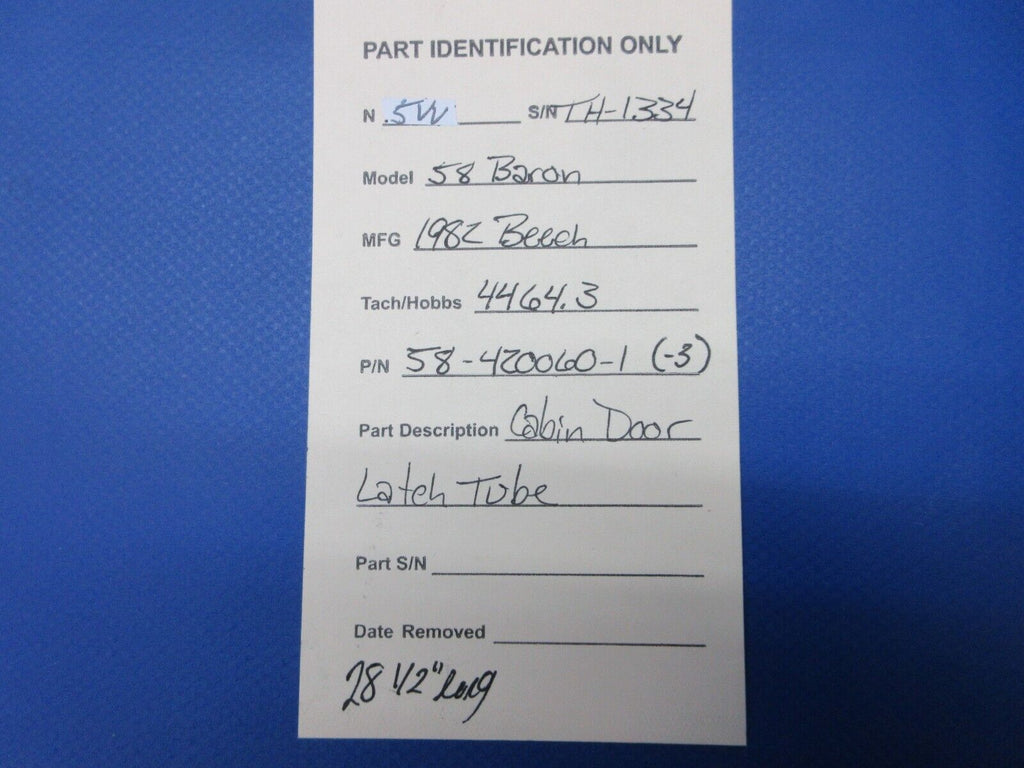 PART IDENTIFICATION ONLY
N 5W S/N TH-1334
Model 58 Baron
MFG 1982 Beech
Tach/Hobbs 4464.3
P/N 58-420060-1 (-3)
Part Description Cabin Door
Latch Tube
Part S/N
Date Removed
28 1/2" long